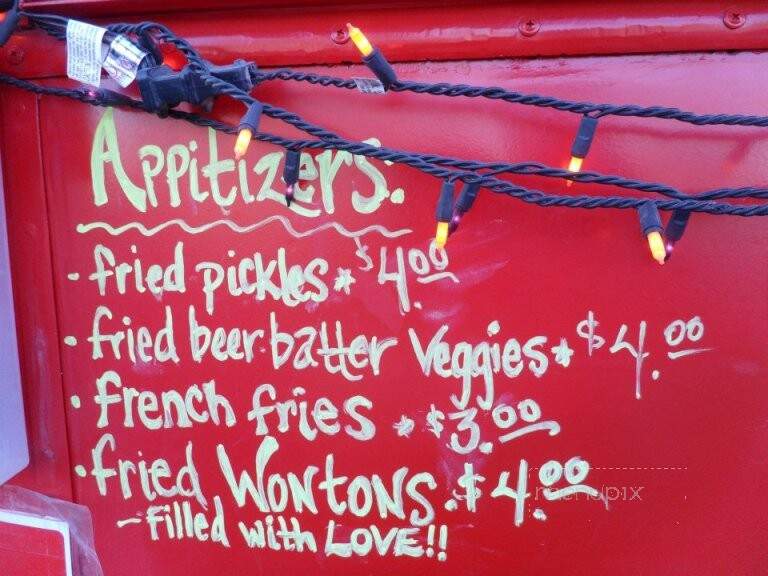 Appitizers:
· fried pickles * $4.00
· fried beer batter Veggies * $4.00
· french fries * $3.00
· fried WONTONS . $4.00
~ filled with LOVE!!
menupix